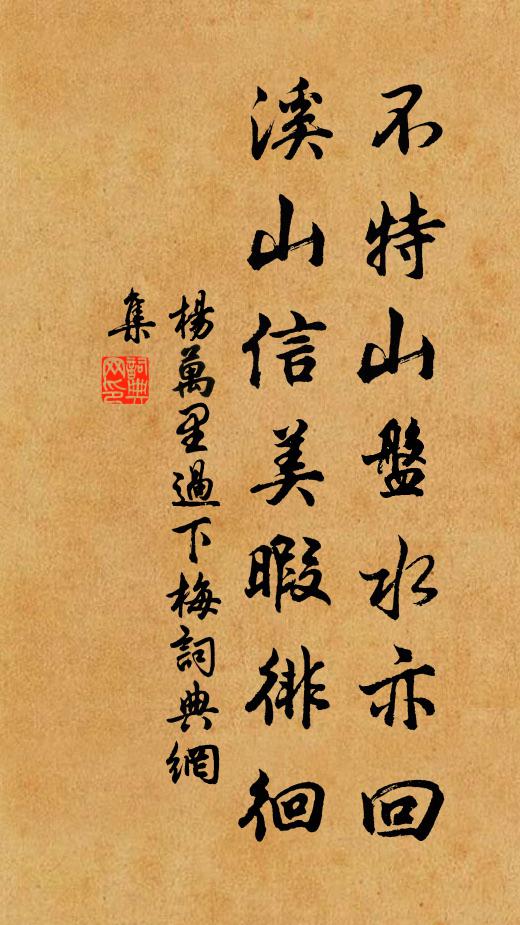 不特山盤水亦回
溪山信美暇徘徊
楊萬里過下梅詞典網
集
詞典網印